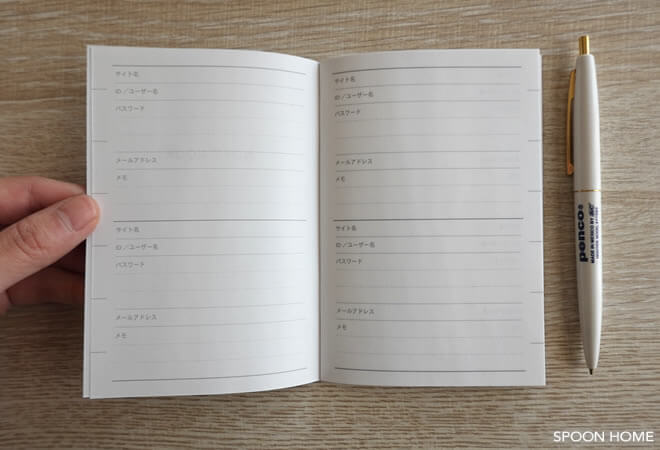 サイト名
ID／ユーザー名
パスワード
メールアドレス
メモ
サイト名
ID／ユーザー名
パスワード
メールアドレス
メモ
サイト名
ID／ユーザー名
パスワード
メールアドレス
メモ
サイト名
ID／ユーザー名
パスワード
メールアドレス
メモ
penco®
MADE IN MEXICO BY BIC®
SPOON HOME